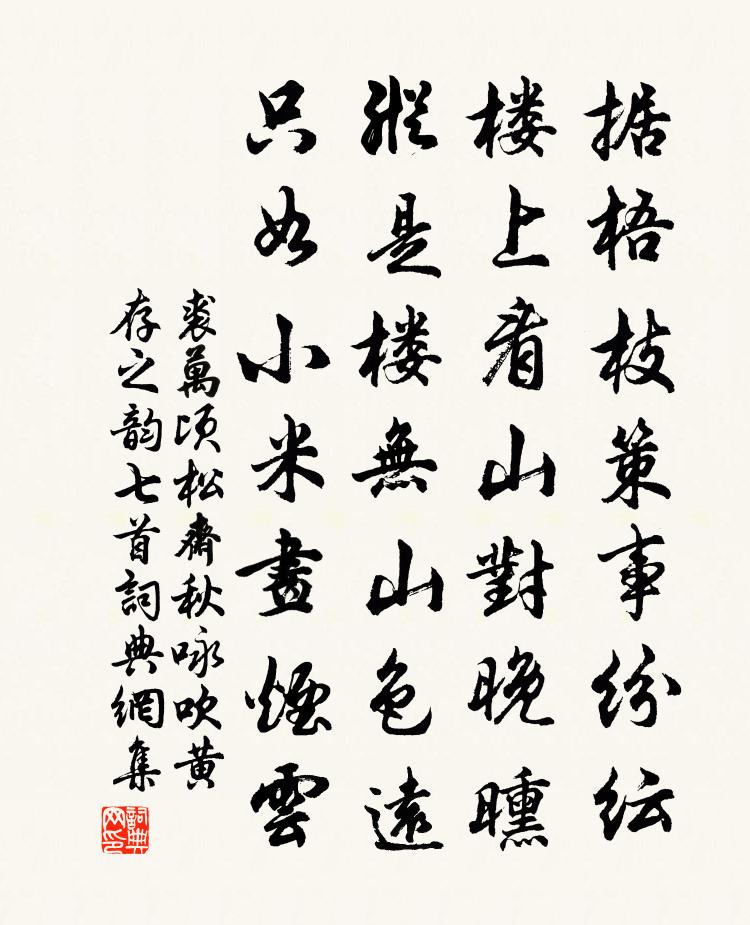 据梧枝策事紛紜
楼上看山對晚曛
縱是楼無山色遠
只如小米畫煙雲
裘萬頃松齋秋咏吹黄
存之韵七首詞典網集
詞典網印